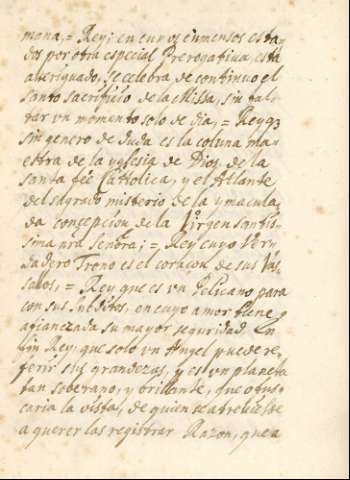 mona, = Rey; en cuyos inmensos esta-
dos por otra especial Prerogativa, està
aberiguado, se celebra de continuo el
santo sacrificio de la Missa, sin fal-
tar vn momento solo de dia, = Rey q̃
sin genero de duda es la coluna ma-
estra de la yglesia de Dios, de la
santa feè Catholica, y el Atlante
del sagrado misterio de la ymacula-
da concepçion de la Virgen santis-
sima nrã señora; =, Rey cuyo Ver-
dadero Trono es el coraçon de sus Va-
sallos, = Rey que es vn Pelicano para
con sus subditos, en cuyo amor tiene
afianzada su mayor seguridad. En
fin Rey, que solo vn Angel puede re-
ferir sus grandezas, y es vn planeta
tan soberano, y brillante, que ofus-
caria la vista, de quien se atreviesse
a querer las registrar Razon, que a